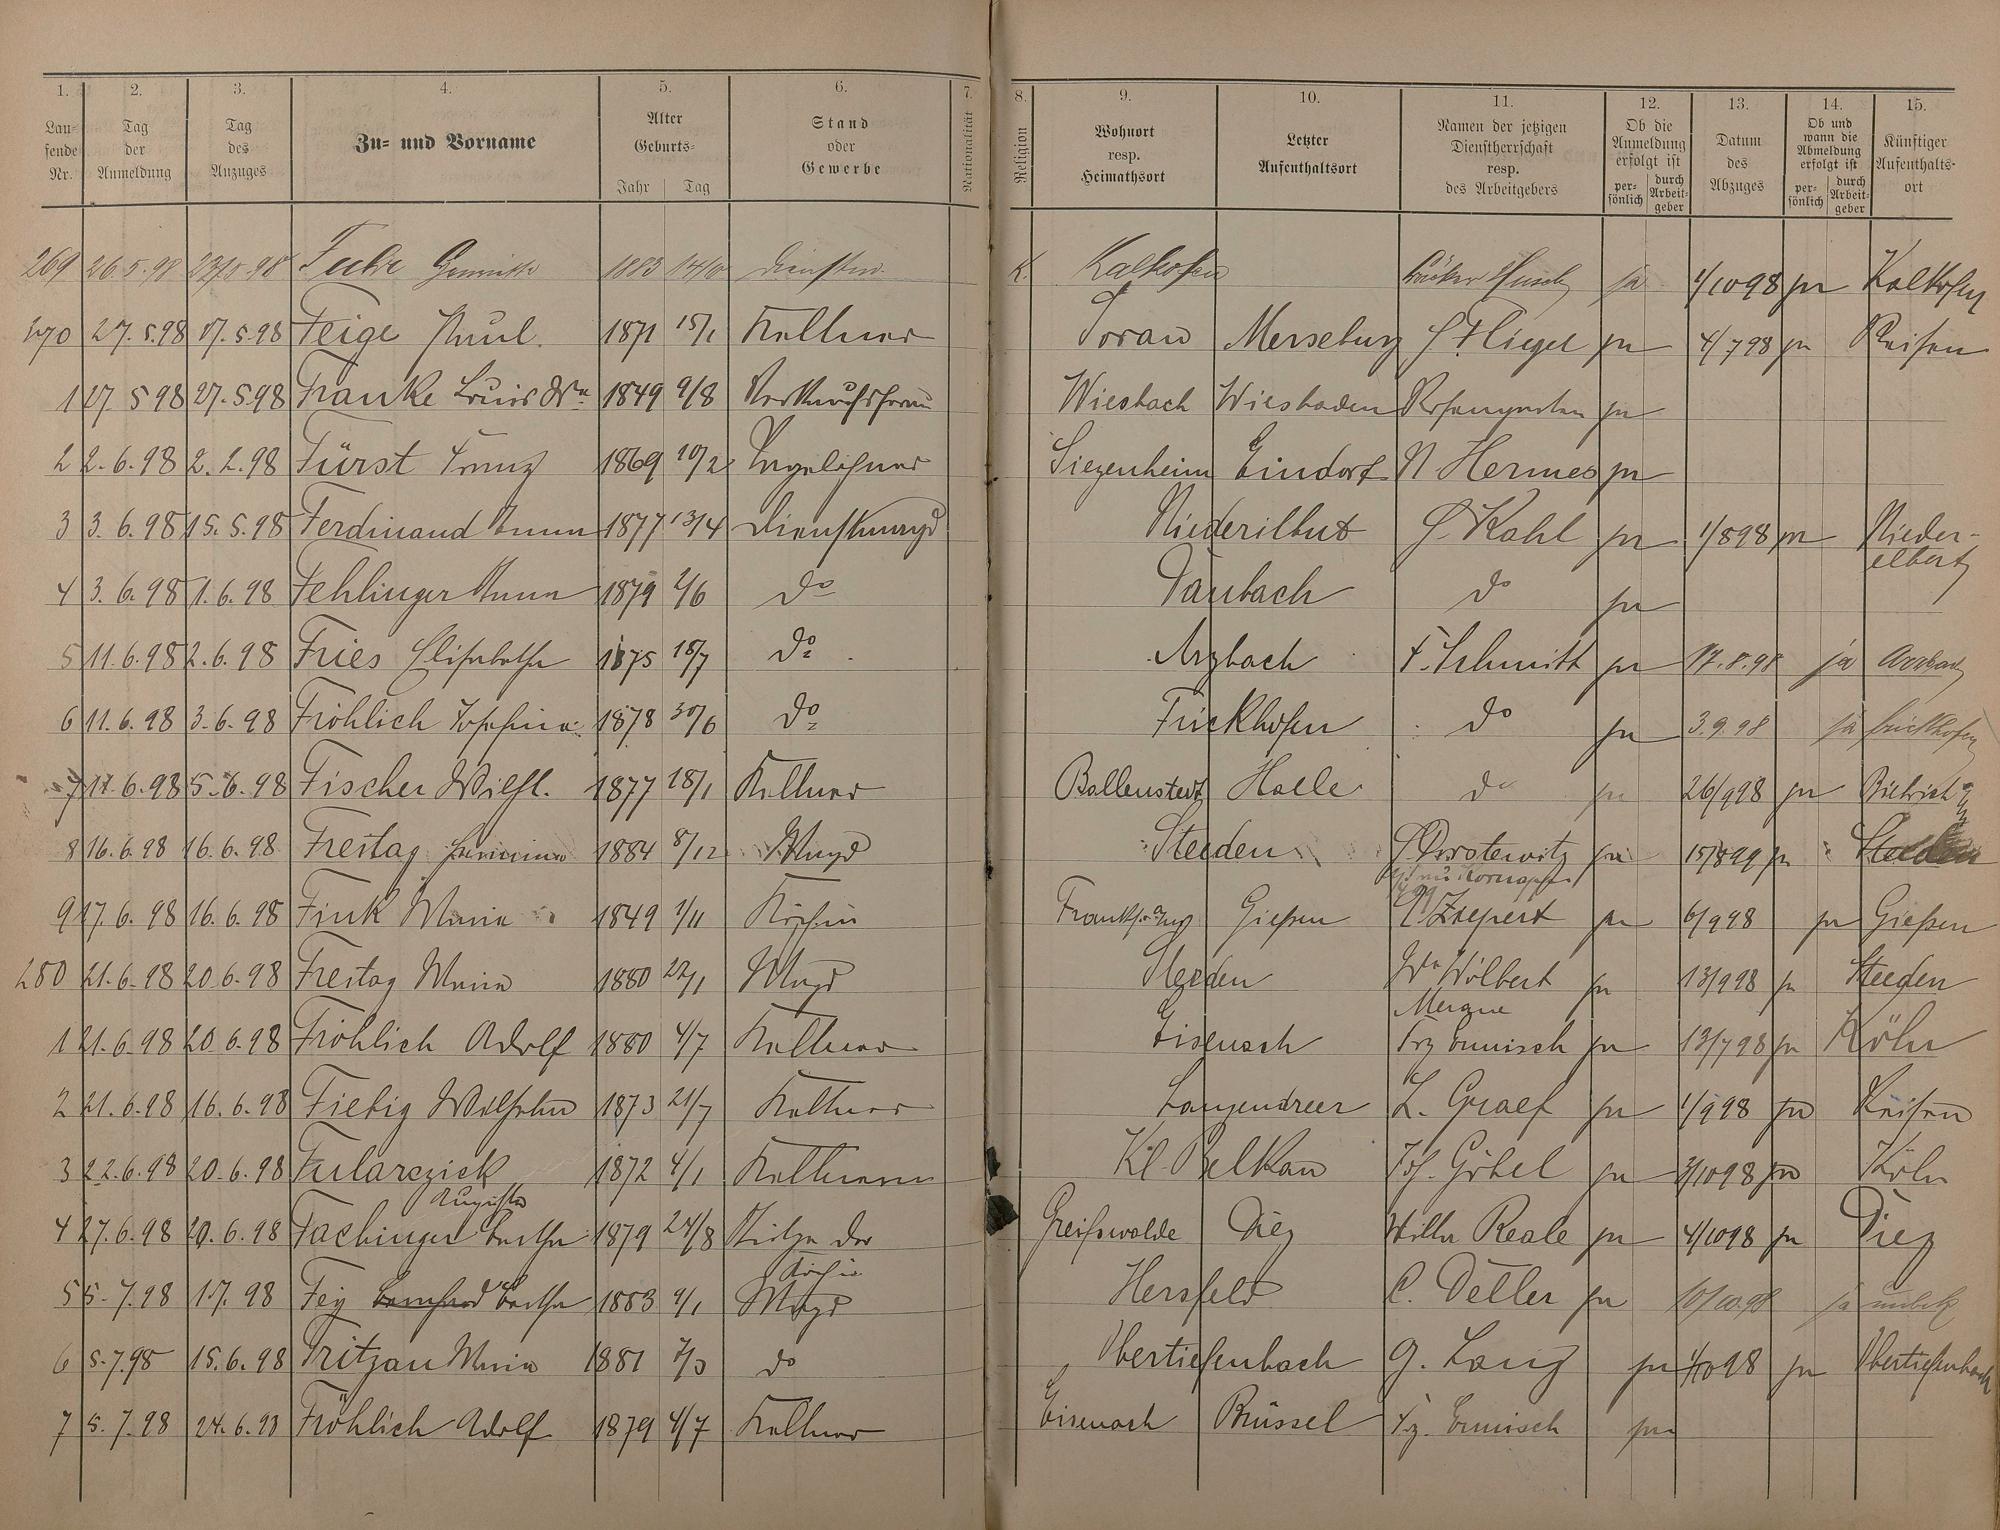 1. 2. 3. 4. 5. 6. 7. 8. 9. 10. 11. 12. 13. 14. 15.
Lau-
fende
Nr.
Tag
der
Anmeldung
Tag
des
Anzuges
Zu- und Vorname
Alter
Geburts-
Jahr Tag
Stand
oder
Gewerbe
Nationalität
Religion
Wohnort
resp.
Heimathsort
Letzter
Aufenthaltsort
Namen der jetzigen
Dienstherrschaft
resp.
des Arbeitgebers
Ob die
Anmeldung
erfolgt ist
per-
sönlich
durch
Arbeit-
geber
Datum
des
Abzuges
Ob und
wann die
Abmeldung
erfolgt ist
per-
sönlich
durch
Arbeit-
geber
Künftiger
Aufenthalts-
ort
269 26.5.98 1883 K. Kalkofen ja 1/10 98 ja Kalkofen
270 27.5.98 17.5.98 Feige Paul. 1871 15/1 Kellner Torau Merseburg Fliegel ja 4/7 98 ja Reisen
1 27 5 98 27.5.98 Franke Louis Wwe 1849 9/8 Verkaufsfrau Wiesbach Wiesbaden ja
2 2.6.98 2.2.98 Fürst Franz 1869 10/2 Siezenheim Eindorf N Hermes ja
3 3.6.98 15.5.98 Ferdinand Anna 1877 13/4 Dienstmagd Niederilbut J. Kahl ja 1/8 98 ja Nieder-
elbert
4 3.6.98 1.6.98 Fehlinger Anna 1879 2/6 do Daubach do ja
5 11.6.98 2.6.98 Fries Elisabetha 1875 18/7 do Arzbach F. Schmitt ja 17.8.98 ja Arzbach
6 11.6.98 3.6.98 Fröhlich Josefina 1878 30/6 do Frickhofen do ja 3.9.98 ja Frickhofen
7 11.6.98 5.6.98 Fischer Wilh. 1877 18/1 Kellner Ballenstedt Halle do ja 26/9 98 ja
8 16.6.98 16.6.98 Freitag 1884 8/12 Magd Steeden ja 15/8 99 ja Steeden
9 17.6.98 16.6.98 Fink Maria 1849 1/11 Köchin Gießen Ziepert ja 6/9 98 ja Gießen
280 21.6.98 20.6.98 Freitag Maria 1880 22/1 Magd Steeden Ww Wölbert ja 13/9 98 ja Steeden
1 21.6.98 20.6.98 Fröhlich Adolf 1880 4/7 Kellner Eisenach Frz Ermisch ja 13/7 98 ja Köln
2 21.6.98 16.6.98 Fiebig Wilhelm 1873 21/7 Kellner Langendreer L. Graef ja 1/9 98 ja Reisen
3 22.6.98 20.6.98 Fularczick 1872 4/1 Kellner Kl. Belkau Jos. Göbel ja 3/10 98 ja Köln
Auguste
4 27.6.98 20.6.98 Fachinger Bertha 1879 24/8 Stütze der Greifswalde Diez Villa Reale ja 4/10 98 ja Diez
Köchin
5 5.7.98 1.7.98 Fey Bertha 1883 9/1 Magd Hersfeld C. Deller ja 10/10.98 ja unbek
6 5.7.98 15.6.98 Fritzau Maria 1881 7/3 do Obertiefenbach G. Lang ja 1/10 98 ja Obertiefenbach
7 5.7.98 24.6.98 Fröhlich Adolf 1879 4/7 Kellner Eisenach Brüssel Fz. Ermisch ja